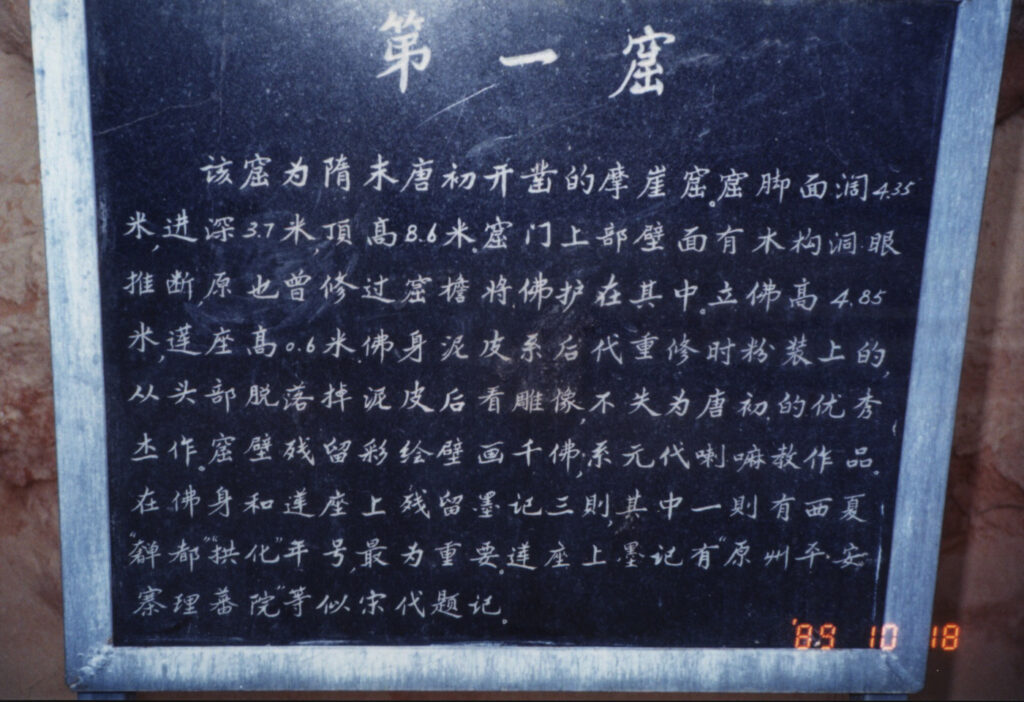 第一窟
该窟为隋末唐初开凿的摩崖窟。窟脚面阔4.35
米,进深3.7米,頂高8.6米。窟门上部壁面有木构洞眼
推断,原也曾修过窟檐将佛护在其中。立佛高4.85
米,莲座高0.6米。佛身泥皮系后代重修时粉装上的,
从头部脱落掉泥皮后看雕像,不失为唐初的优秀
杰作。窟壁残留彩绘壁画千佛,系元代喇嘛教作品。
在佛身和莲座上残留墨记三則,其中一則有西夏
“奲都”“拱化”年号,最为重要。莲座上墨记有“原州平安
寨理蕃院”等似宋代题记。
'89 10 18